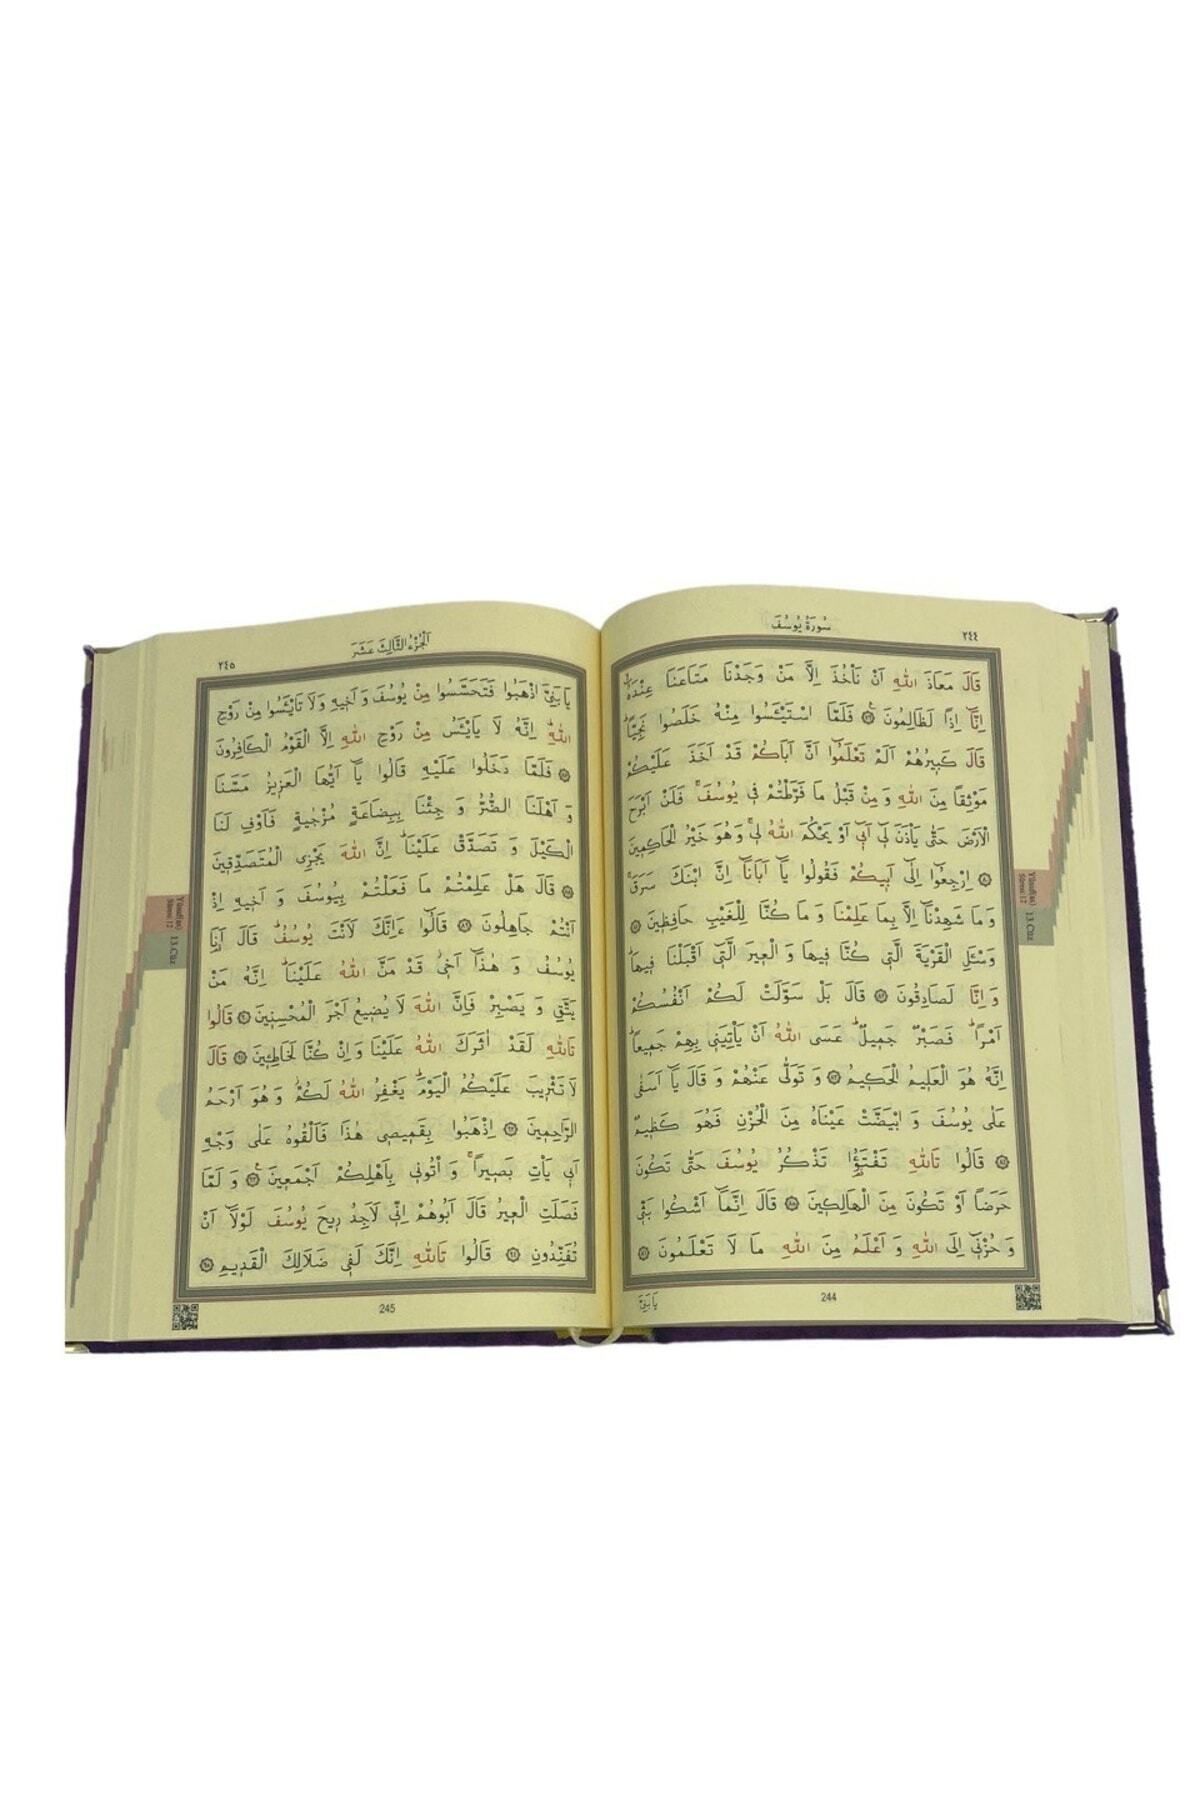 ٢٤٤
سُورَةُ يُوسُفَ
قَالَ مَعَاذَ اللّٰهِ اَنْ نَأْخُذَ اِلَّا مَنْ وَجَدْنَا مَتَاعَنَا عِنْدَهُٓۙ
اِنَّٓا اِذًا لَظَالِمُونَ ۟ فَلَمَّا اسْتَيْـَٔسُوا مِنْهُ خَلَصُوا نَجِيًّاۜ
قَالَ كَبِيرُهُمْ اَلَمْ تَعْلَمُٓوا اَنَّ اَبَاكُمْ قَدْ اَخَذَ عَلَيْكُمْ
مَوْثِقًا مِنَ اللّٰهِ وَمِنْ قَبْلُ مَا فَرَّطْتُمْ فِي يُوسُفَۚ فَلَنْ اَبْرَحَ
الْاَرْضَ حَتّٰى يَأْذَنَ لِٓي اَبِٓي اَوْ يَحْكُمَ اللّٰهُ لِيۚ وَهُوَ خَيْرُ الْحَاكِمِينَ
۝ اِرْجِعُٓوا اِلٰٓى اَبِيكُمْ فَقُولُوا يَٓا اَبَانَٓا اِنَّ ابْنَكَ سَرَقَۚ
وَمَا شَهِدْنَٓا اِلَّا بِمَا عَلِمْنَا وَمَا كُنَّا لِلْغَيْبِ حَافِظِينَ ۝
وَسْـَٔلِ الْقَرْيَةَ الَّتِي كُنَّا فِيهَا وَالْعِيرَ الَّتِٓي اَقْبَلْنَا فِيهَاۜ
وَاِنَّا لَصَادِقُونَ ۝ قَالَ بَلْ سَوَّلَتْ لَكُمْ اَنْفُسُكُمْ
اَمْرًاۜ فَصَبْرٌ جَمِيلٌۜ عَسَى اللّٰهُ اَنْ يَأْتِيَنِي بِهِمْ جَمِيعًاۜ
اِنَّهُ هُوَ الْعَلِيمُ الْحَكِيمُ ۝ وَتَوَلّٰى عَنْهُمْ وَقَالَ يَٓا اَسَفٰى
عَلٰى يُوسُفَ وَابْيَضَّتْ عَيْنَاهُ مِنَ الْحُزْنِ فَهُوَ كَظِيمٌ
۝ قَالُوا تَاللّٰهِ تَفْتَؤُ۬ا تَذْكُرُ يُوسُفَ حَتّٰى تَكُونَ
حَرَضًا اَوْ تَكُونَ مِنَ الْهَالِكِينَ ۝ قَالَ اِنَّمَٓا اَشْكُوا بَثِّي
وَحُزْنِٓي اِلَى اللّٰهِ وَاَعْلَمُ مِنَ اللّٰهِ مَا لَا تَعْلَمُونَ ۝
244
يَا بَنِيَّ
Yusuf(as)
Sûresi 12
13.Cüz
٢٤٥
اَلْجُزْءُ الثَّالِثَ عَشَرَ
يَا بَنِيَّ اذْهَبُوا فَتَحَسَّسُوا مِنْ يُوسُفَ وَاَخِيهِ وَلَا تَايْـَٔسُوا مِنْ رَوْحِ
اللّٰهِۜ اِنَّهُ لَا يَايْـَٔسُ مِنْ رَوْحِ اللّٰهِ اِلَّا الْقَوْمُ الْكَافِرُونَ
۝ فَلَمَّا دَخَلُوا عَلَيْهِ قَالُوا يَٓا اَيُّهَا الْعَزِيزُ مَسَّنَا
وَاَهْلَنَا الضُّرُّ وَجِئْنَا بِبِضَاعَةٍ مُزْجٰيةٍ فَاَوْفِ لَنَا
الْكَيْلَ وَتَصَدَّقْ عَلَيْنَاۜ اِنَّ اللّٰهَ يَجْزِي الْمُتَصَدِّقِينَ
۝ قَالَ هَلْ عَلِمْتُمْ مَا فَعَلْتُمْ بِيُوسُفَ وَاَخِيهِ اِذْ
اَنْتُمْ جَاهِلُونَ ۝ قَالُٓوا ءَاِنَّكَ لَاَنْتَ يُوسُفُۜ قَالَ اَنَا۬
يُوسُفُ وَهٰذَٓا اَخِيۘ قَدْ مَنَّ اللّٰهُ عَلَيْنَاۜ اِنَّهُ مَنْ
يَتَّقِ وَيَصْبِرْ فَاِنَّ اللّٰهَ لَا يُضِيعُ اَجْرَ الْمُحْسِنِينَ ۝ قَالُوا
تَاللّٰهِ لَقَدْ اٰثَرَكَ اللّٰهُ عَلَيْنَا وَاِنْ كُنَّا لَخَاطِـِٔينَ ۝ قَالَ
لَا تَثْرِيبَ عَلَيْكُمُ الْيَوْمَۜ يَغْفِرُ اللّٰهُ لَكُمْۘ وَهُوَ اَرْحَمُ
الرَّاحِمِينَ ۝ اِذْهَبُوا بِقَمِيصِي هٰذَا فَاَلْقُوهُ عَلٰى وَجْهِ
اَبِي يَأْتِ بَصِيرًاۚ وَأْتُونِي بِاَهْلِكُمْ اَجْمَعِينَ ۟ وَلَمَّا
فَصَلَتِ الْعِيرُ قَالَ اَبُوهُمْ اِنِّي لَاَجِدُ رِيحَ يُوسُفَ لَوْلَٓا اَنْ
تُفَنِّدُونِ ۝ قَالُوا تَاللّٰهِ اِنَّكَ لَفِي ضَلَالِكَ الْقَدِيمِ ۝
245
Yusuf(as)
Sûresi 12
13.Cüz